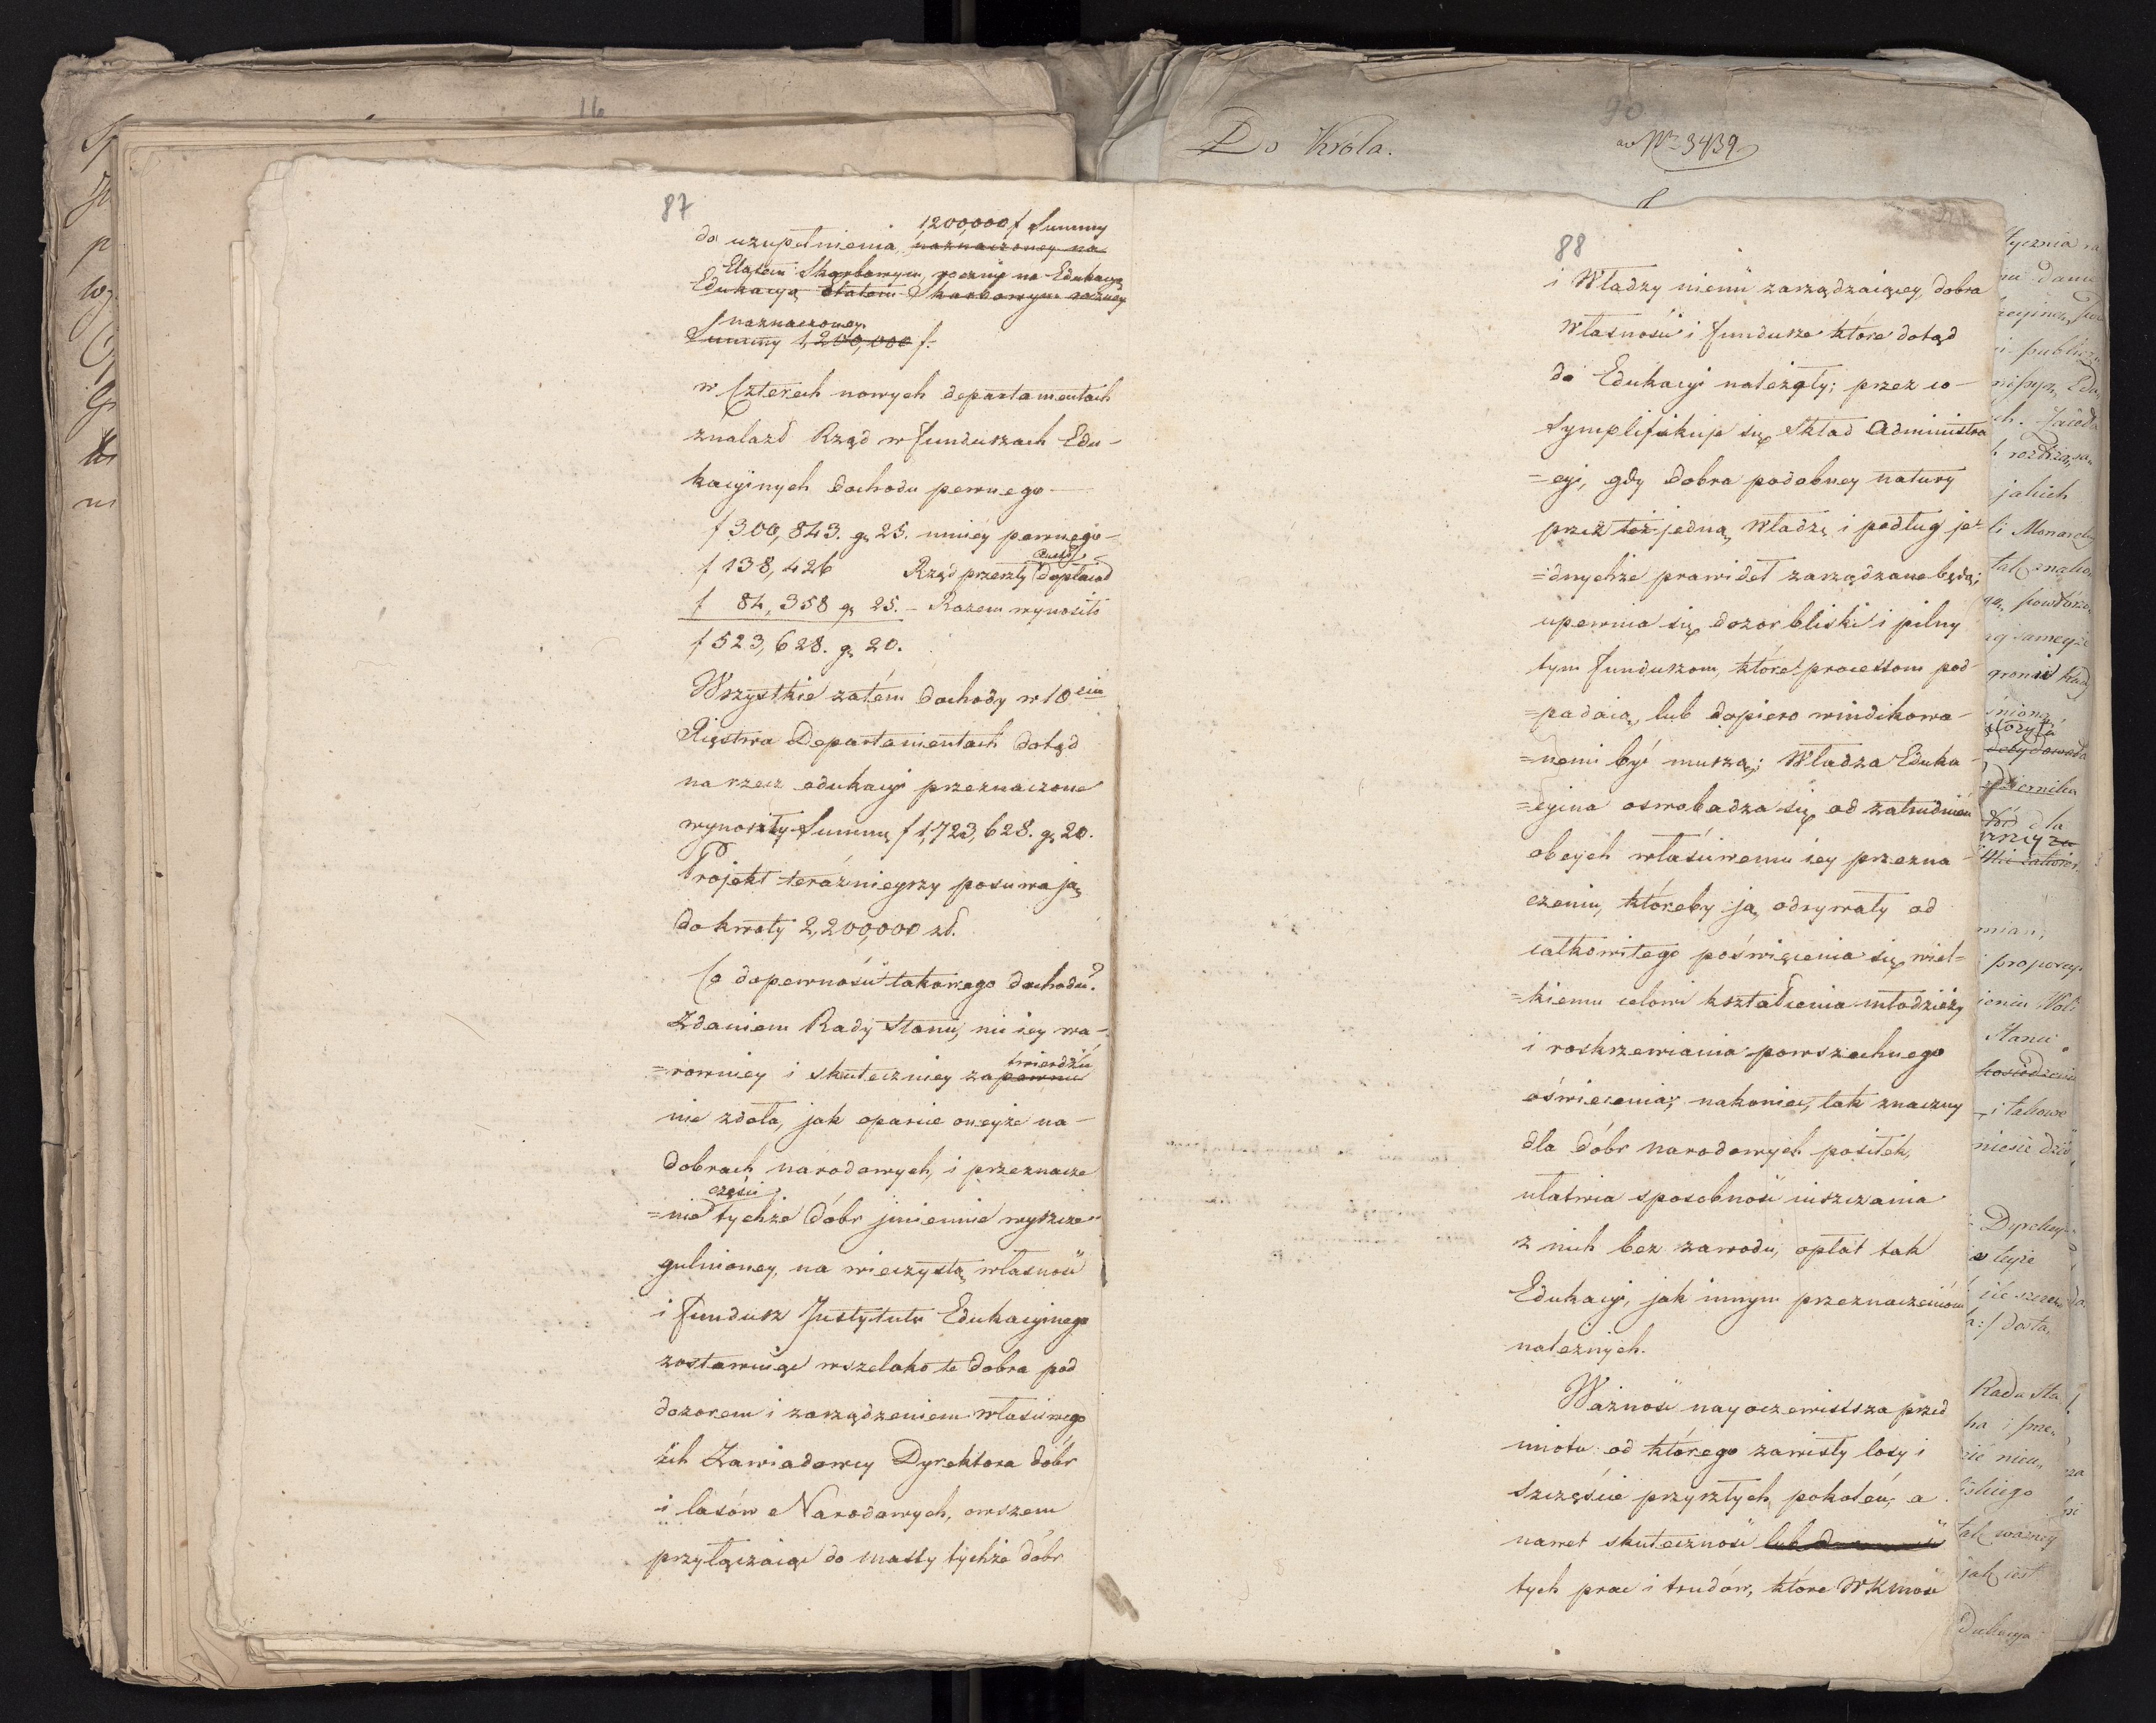 16
90
Do Króla.
ad Nr 3439
87
1200,000 f Summy
do uzupełnienia naznaczoney na
Etatem Skarbowym, rocznie na Edukacyą
Edukacyą Etatem Skarbowym roczney
naznaczoney
Summy 1,200,000 f:
w Czterech nowych departamentach
znalazł Rząd w funduszach Edu-
kacyinych dochodu pewnego
f 300,843. g 25. mniey pewnego
f 138,426 Rząd przeszły dopłacał
f 84,358 g 25. - Razem wynosiło
f 523,628. g 20.
Wszystkie zatém dochody w 10ciu
Xięstwa Departamentach dotąd
na rzecz edukacyi przeznaczone
wynoszły Summę f 1,723,628. g 20.
Projekt teraźnieyszy posuwa ją
do kwoty 2,200,000 zł.
Co do pewności takowego dochodu?
Zdaniem Rady Stanu, nic iey wa-
=rowniey i skuteczniey zapewnić
twierdzić
nie zdoła, jak oparcie oneyże na
dobrach narodowych, i przeznacze
części
=nie tychże dóbr jmiennie wyszcze-
gulnioney, na wieczystą własność
i fundusz Jnstytutu Edukacyinego
zostawuiąc wszelako te dobra pod
dozorem i zarządzeniem właściwego
ich Zawiadowcy Dyrektora dóbr
i lasów Narodowych, owszem
przyłączaiąc do massy tychże dóbr
88
i Władzy niemi zarządzaiącey, dobra
własności i fundusze które dotąd
do Edukacyi należały; przez co
symplifikuje się skład Administra
=cyi, gdy dobra podobney natury
przez też jedną, władzę i podług je-
=dnychże prawideł zarządzane będą;
upewnia się dozór bliski i pilny
tym funduszom, które processom pod-
=padaią, lub dopiero windikowa-
=nemi być muszą; Władza Eduka
=cyina oswobadza się od zatrudnień
obcych właściwemu iey przezna-
czeniu, któreby ją odrywały od
całkowitego poświęcenia się wiel=
=kiemu celowi kształcenia młodzieży
i roskrzewiania powszechnego
oświecenia; nakoniec, tak znaczny
dla dóbr narodowych posiłek,
ułatwia sposobność uiszczania
z nich bez zawodu, opłat tak
Edukacyi, jak innym przeznaczeniom
należnych.
Ważność nayoczewistsza przed
miotu od którego zawisły losy i
szczęście przyszłych pokoleń, a
nawet skuteczność
tych prac i trudów, które WKMość